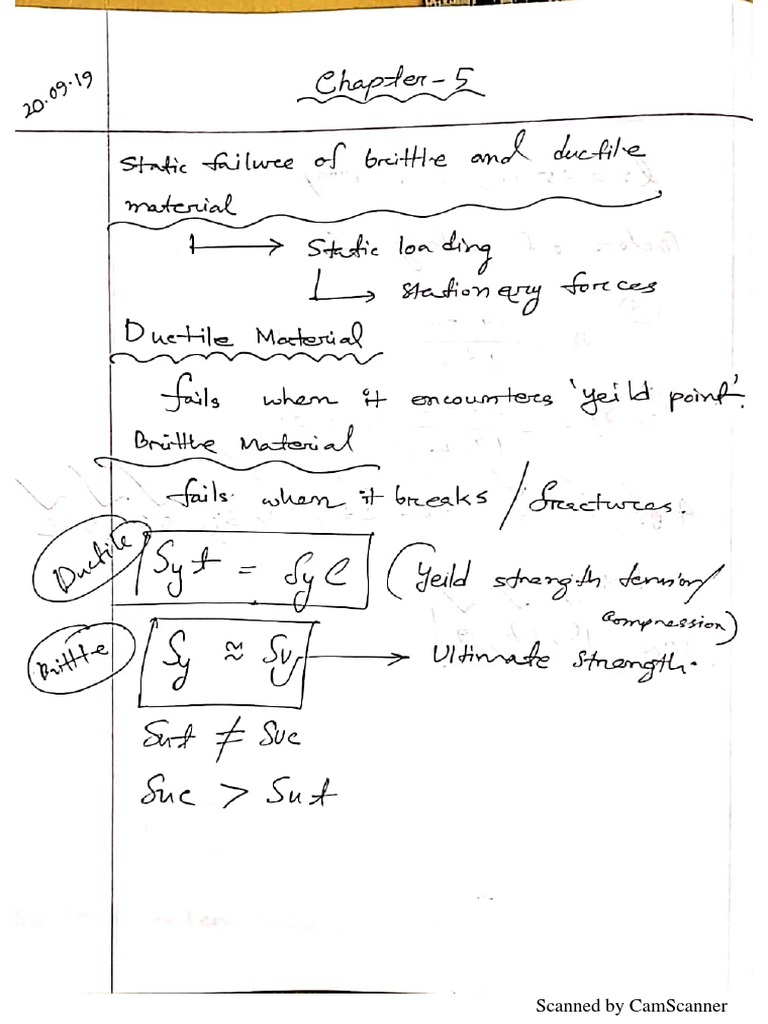 20.09.19
Chapter-5
Static failure of brittle and ductile
material
Static loading
Stationary forces
Ductile Material
fails when it encounters 'yeild point'.
Brittle Material
fails when it breaks / fractures.
Ductile Syt = Syc (Yeild strength tension/
compression)
Brittle Sy ≈ Su → Ultimate strength.
Sut ≠ Suc
Suc > Sut
Scanned by CamScanner